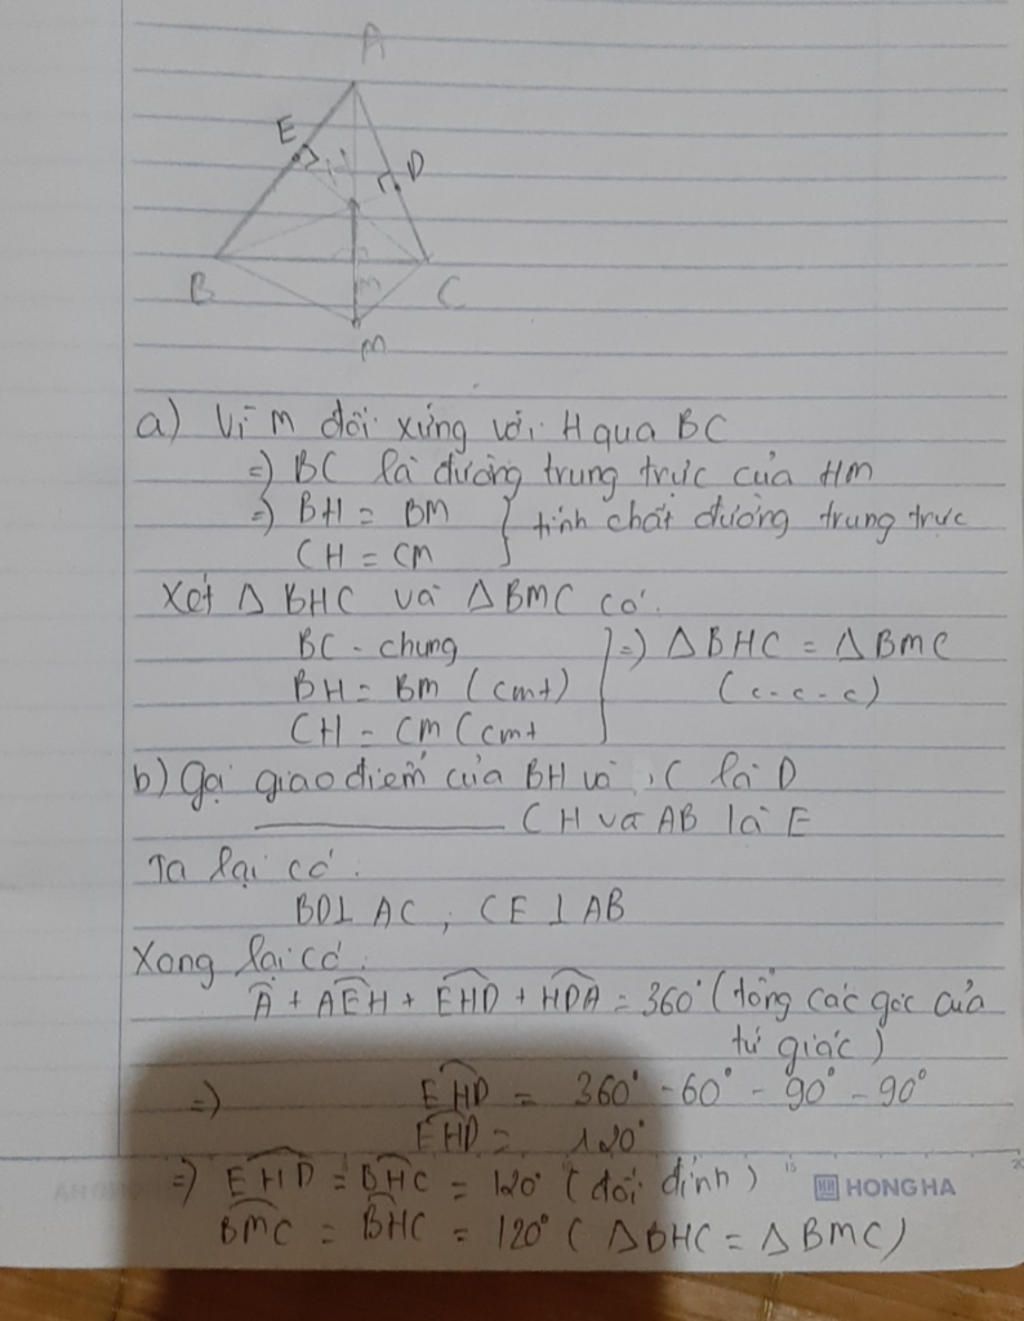 A
E
H
D
B
m
C
M
a) Vì M đối xứng với H qua BC
=) BC là đường trung trực của HM
=) BH = BM } tính chất đường trung trực
CH = CM
Xét Δ BHC và Δ BMC có:
BC - chung } =) Δ BHC = Δ BMC
BH = BM (cmt) (c-c-c)
CH = CM (cmt
b) Gọi giao điểm của BH và C là D
CH và AB là E
Ta lại có:
BD⊥ AC, CE ⊥ AB
Xong lại có:
Â + AEH + EHD + HDA = 360° (tổng các góc của
tứ giác)
=) EHD = 360° - 60° - 90° - 90°
EHD = 120°
=) EHD = BHC = 120° (đối đỉnh)
15
20
HONG HA
BMC = BHC = 120° (Δ BHC = Δ BMC)